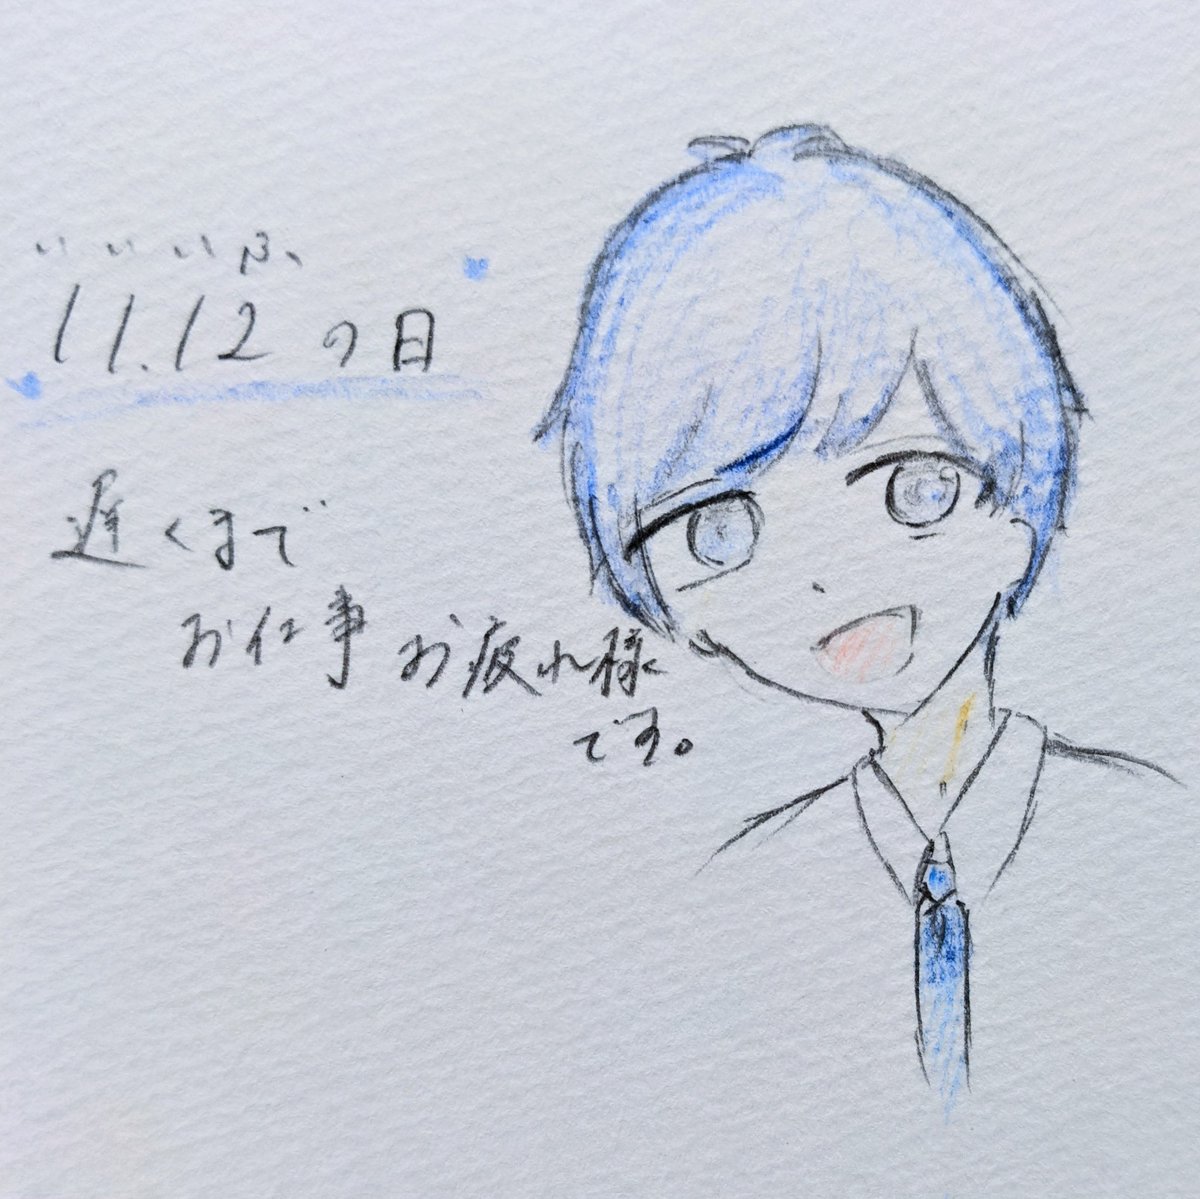 いいいふ
11.12の日
遅くまで
お仕事お疲れ様
です。